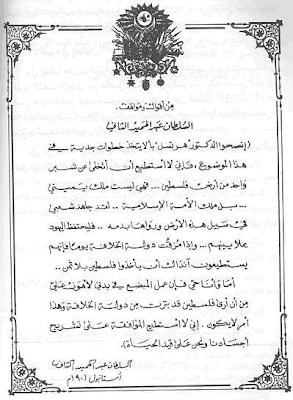 من أقواله ومواقفه
السلطان عبد الحميد الثاني
(إنصحوا الدكتور "هرتسل" بألا يتخذ خطوات جدية في
هذا الموضوع، فإني لا أستطيع أن أتخلى عن شبر
واحد من أرض فلسطين ... فهي ليست ملك يميني
... بل ملك الأمة الإسلامية .. لقد جاهد شعبي
في سبيل هذه الأرض ورواها بدمه .. فليحتفظ اليهود
بملايينهم ... وإذا مزقت دولة الخلافة يوما فإنهم
يستطيعون آنذاك أن يأخذوا فلسطين بلا ثمن ..
أما وأنا حي فإن عمل المبضع في بدني لأهون علي
من أن أرى فلسطين قد بترت من دولة الخلافة وهذا
أمر لا يكون . إني لا أستطيع الموافقة على تشريح
أجسادنا ونحن على قيد الحياة).
السلطان عبد الحميد الثاني
استانبول ١٩٠١م